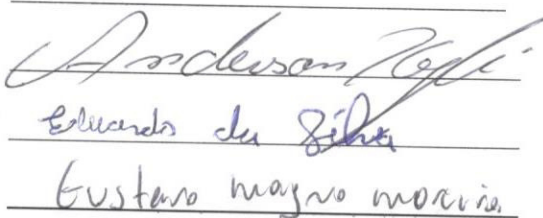 Anderson
Eduardo da Silva
Gustavo magno moreira